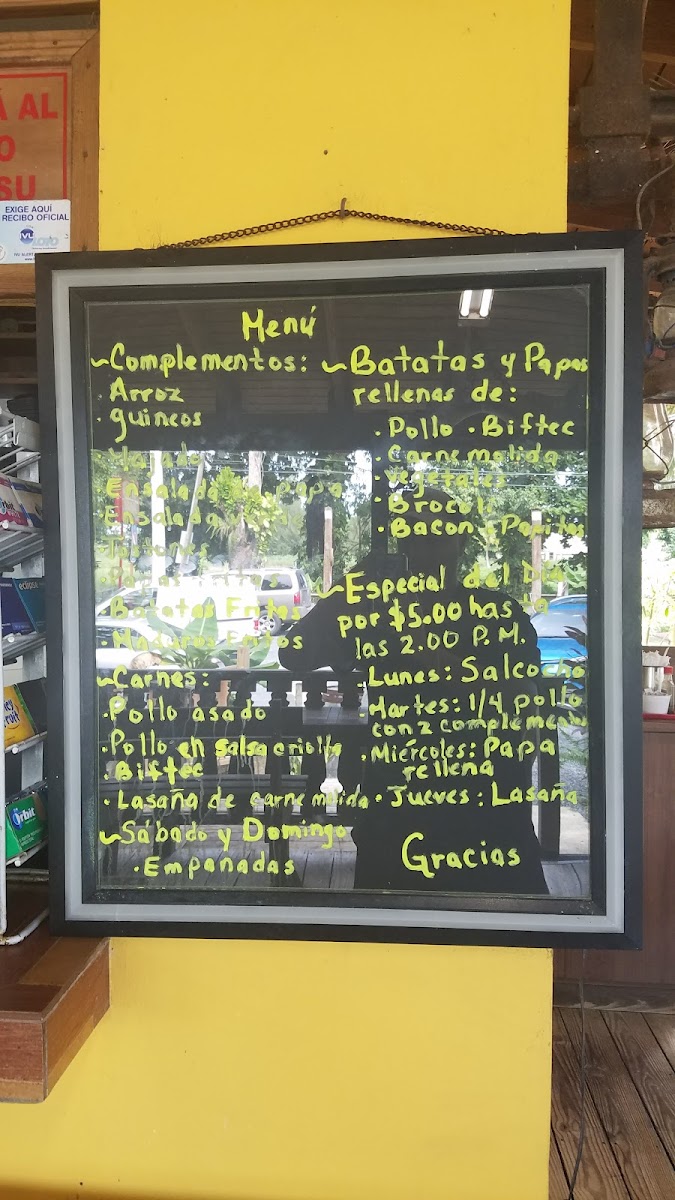 Á AL
O
SU
EXIGE AQUÍ
RECIBO OFICIAL
IVU
LOTO
Menú
~Complementos:
· Arroz
· guineos
Ensalada de papa
Ensalada
Tostones
Papas Fritas
· Batatas Fritas
· Maduros Fritos
~Carnes:
· Pollo asado
· Pollo en salsa criolla
· Biftec
· Lasaña de carne molida
~Sábado y Domingo
· Empanadas
~Batatas y Papas
rellenas de:
· Pollo · Biftec
· Carne molida
· vegetales
· Brocoli
· Bacon y Papitas
~Especial del Dia
por $5.00 hasta
las 2.00 P.M.
· Lunes: Salcocho
· Martes: 1/4 pollo
con 2 complementos
· Miércoles: Papa
rellena
· Jueves: Lasaña
Gracias
eclipse
Orbit